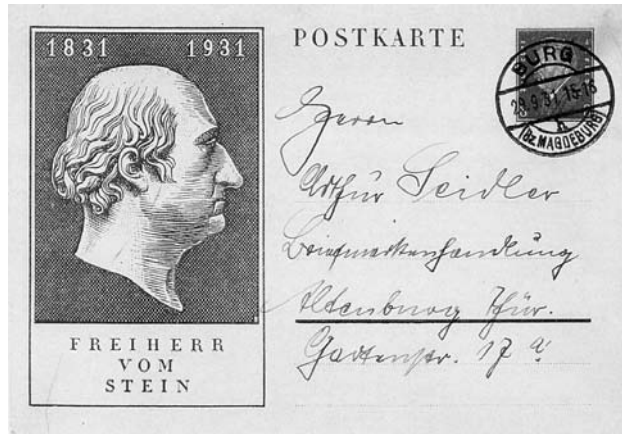 1831 1931
FREIHERR
VOM
STEIN
POSTKARTE
BURG
29.9.31. 15-16
h
(Bz. MAGDEBURG)
Herrn
Arthur Seidler
Briefmarkenhandlung
Altenburg Thür.
Gartenstr. 17 a